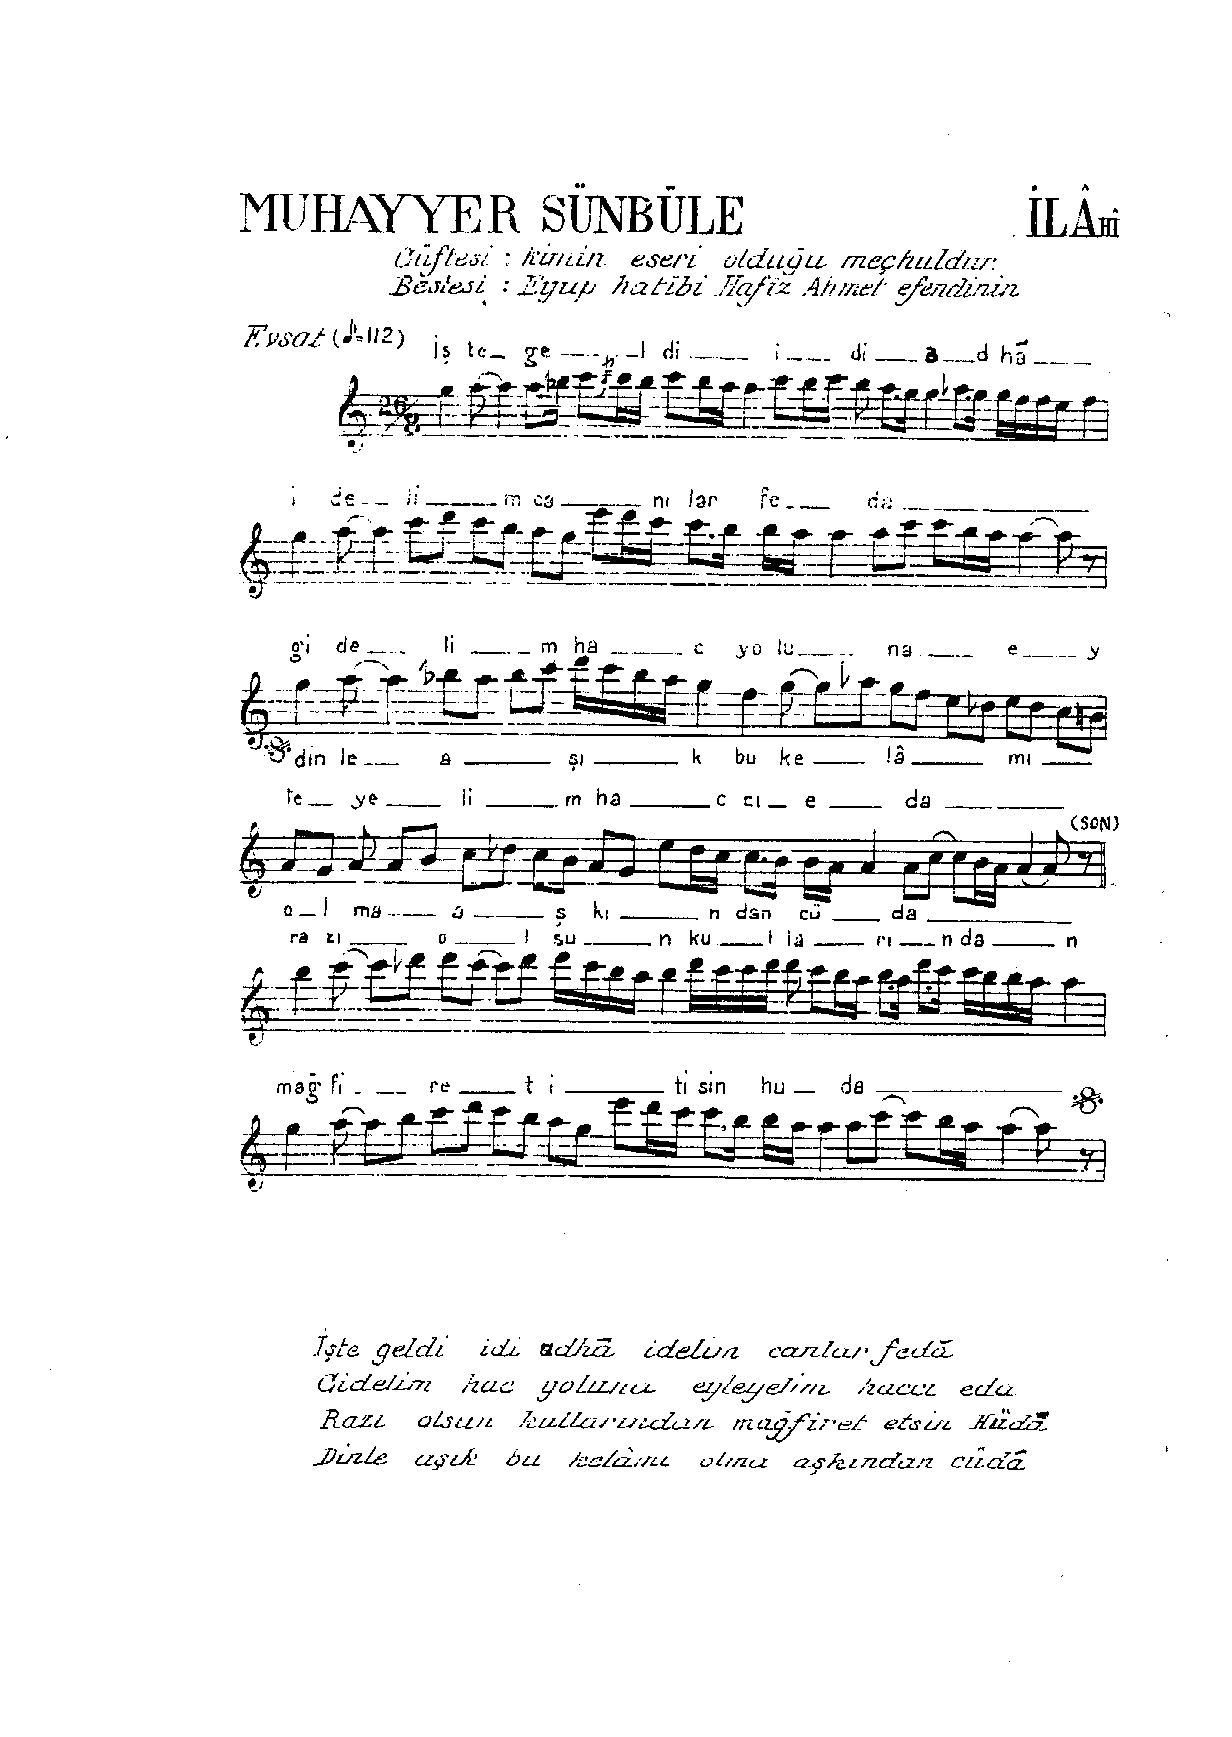 MUHAYYER SÜNBÜLE İLÂHÎ
Güftesi : kimin eseri olduğu meçhuldur.
Bestesi : Eyup hatibi Hafız Ahmet efendinin
Evsat (♪=112)
İş te_ ge ___ l di ___ i ___ di ___ a __ d hâ ___
26/8
i de__ li ____ m ca ____ nı lar fe___ da ________
gi de___ li ____ m ha ____ c yo lu___ na ___ e ___ y
din le__ a ____ şı ____ k bu ke ___ lâ ____ mı ___
le__ ye ___ li ____ m ha ____ c cı _ e ___ da ______
(SON)
o _ l ma ___ a ____ ş kı ____ n dan cü ___ da ______
ra zı ___ o ____ l su ____ n ku ___ l la ___ rı __ n da ___ n
mağ fi ___ re ___ t i _____ ti sin hu _ da ________
İşte geldi idi adhâ idelim canlar fedâ
Gidelim hac yoluna eyleyelim haccı eda
Razı olsun kullarından mağfiret etsin Hüdâ
Dinle aşık bu kelâmı olma aşkından cüdâ